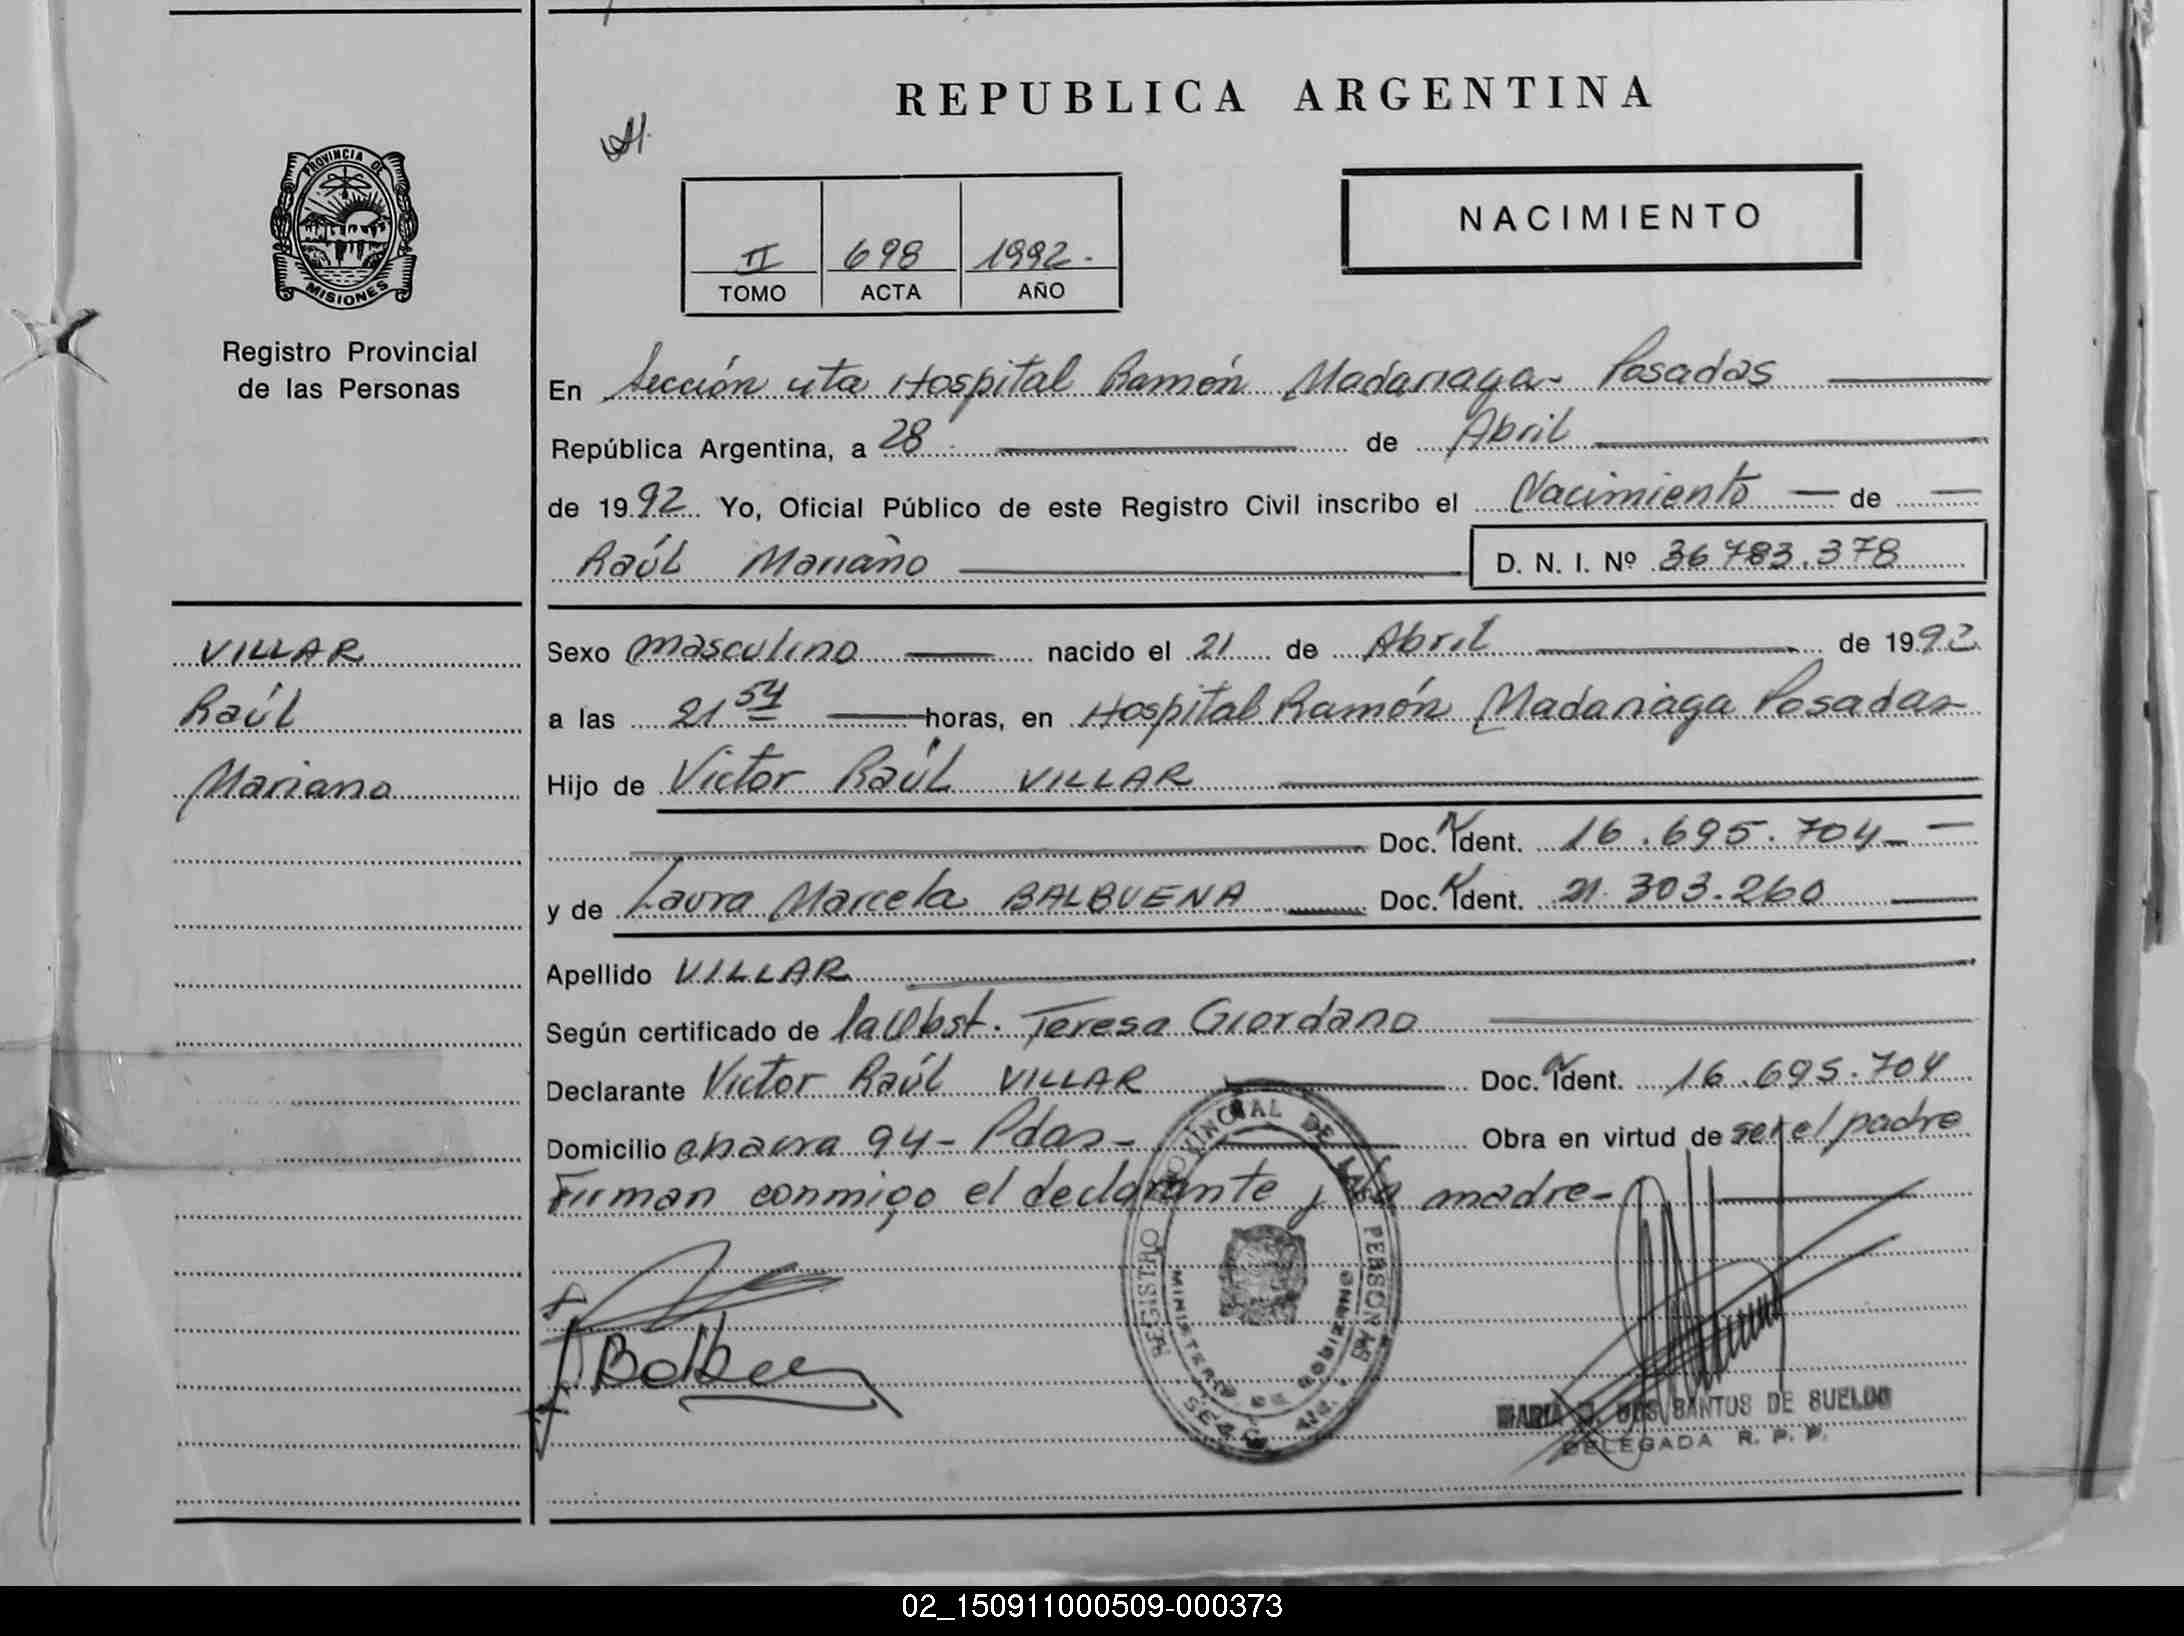 REPUBLICA ARGENTINA
PROVINCIA DE
MISIONES
Registro Provincial
de las Personas
II 698 1992.-
TOMO ACTA AÑO
NACIMIENTO
En Sección 4ta Hospital Ramón Madariaga- Posadas
República Argentina, a 28 de Abril
de 1992 Yo, Oficial Público de este Registro Civil inscribo el Nacimiento de
Raúl Mariano
D. N. I. Nº 36783.378
VILLAR
Raúl
Mariano
Sexo masculino nacido el 21 de Abril de 1992
a las 21 54 horas, en Hospital Ramón Madariaga Posadas-
Hijo de Victor Raúl VILLAR
Doc. Ident. 16.695.704-
y de Laura Marcela BALBUENA Doc. Ident. 21.303.260
Apellido VILLAR
Según certificado de la Obst. Teresa Giordano
Declarante Victor Raúl VILLAR Doc. Ident. 16.695.704
Domicilio 94- Pdas- Obra en virtud de ser el padre
Firman conmigo el declarante y la madre-
REGISTRO PROVINCIAL DE LAS PERSONAS
MINISTERIO DE GOBIERNO
MARIA DOS SANTOS DE SUELDO
DELEGADA R. P. P.
02_150911000509-000373